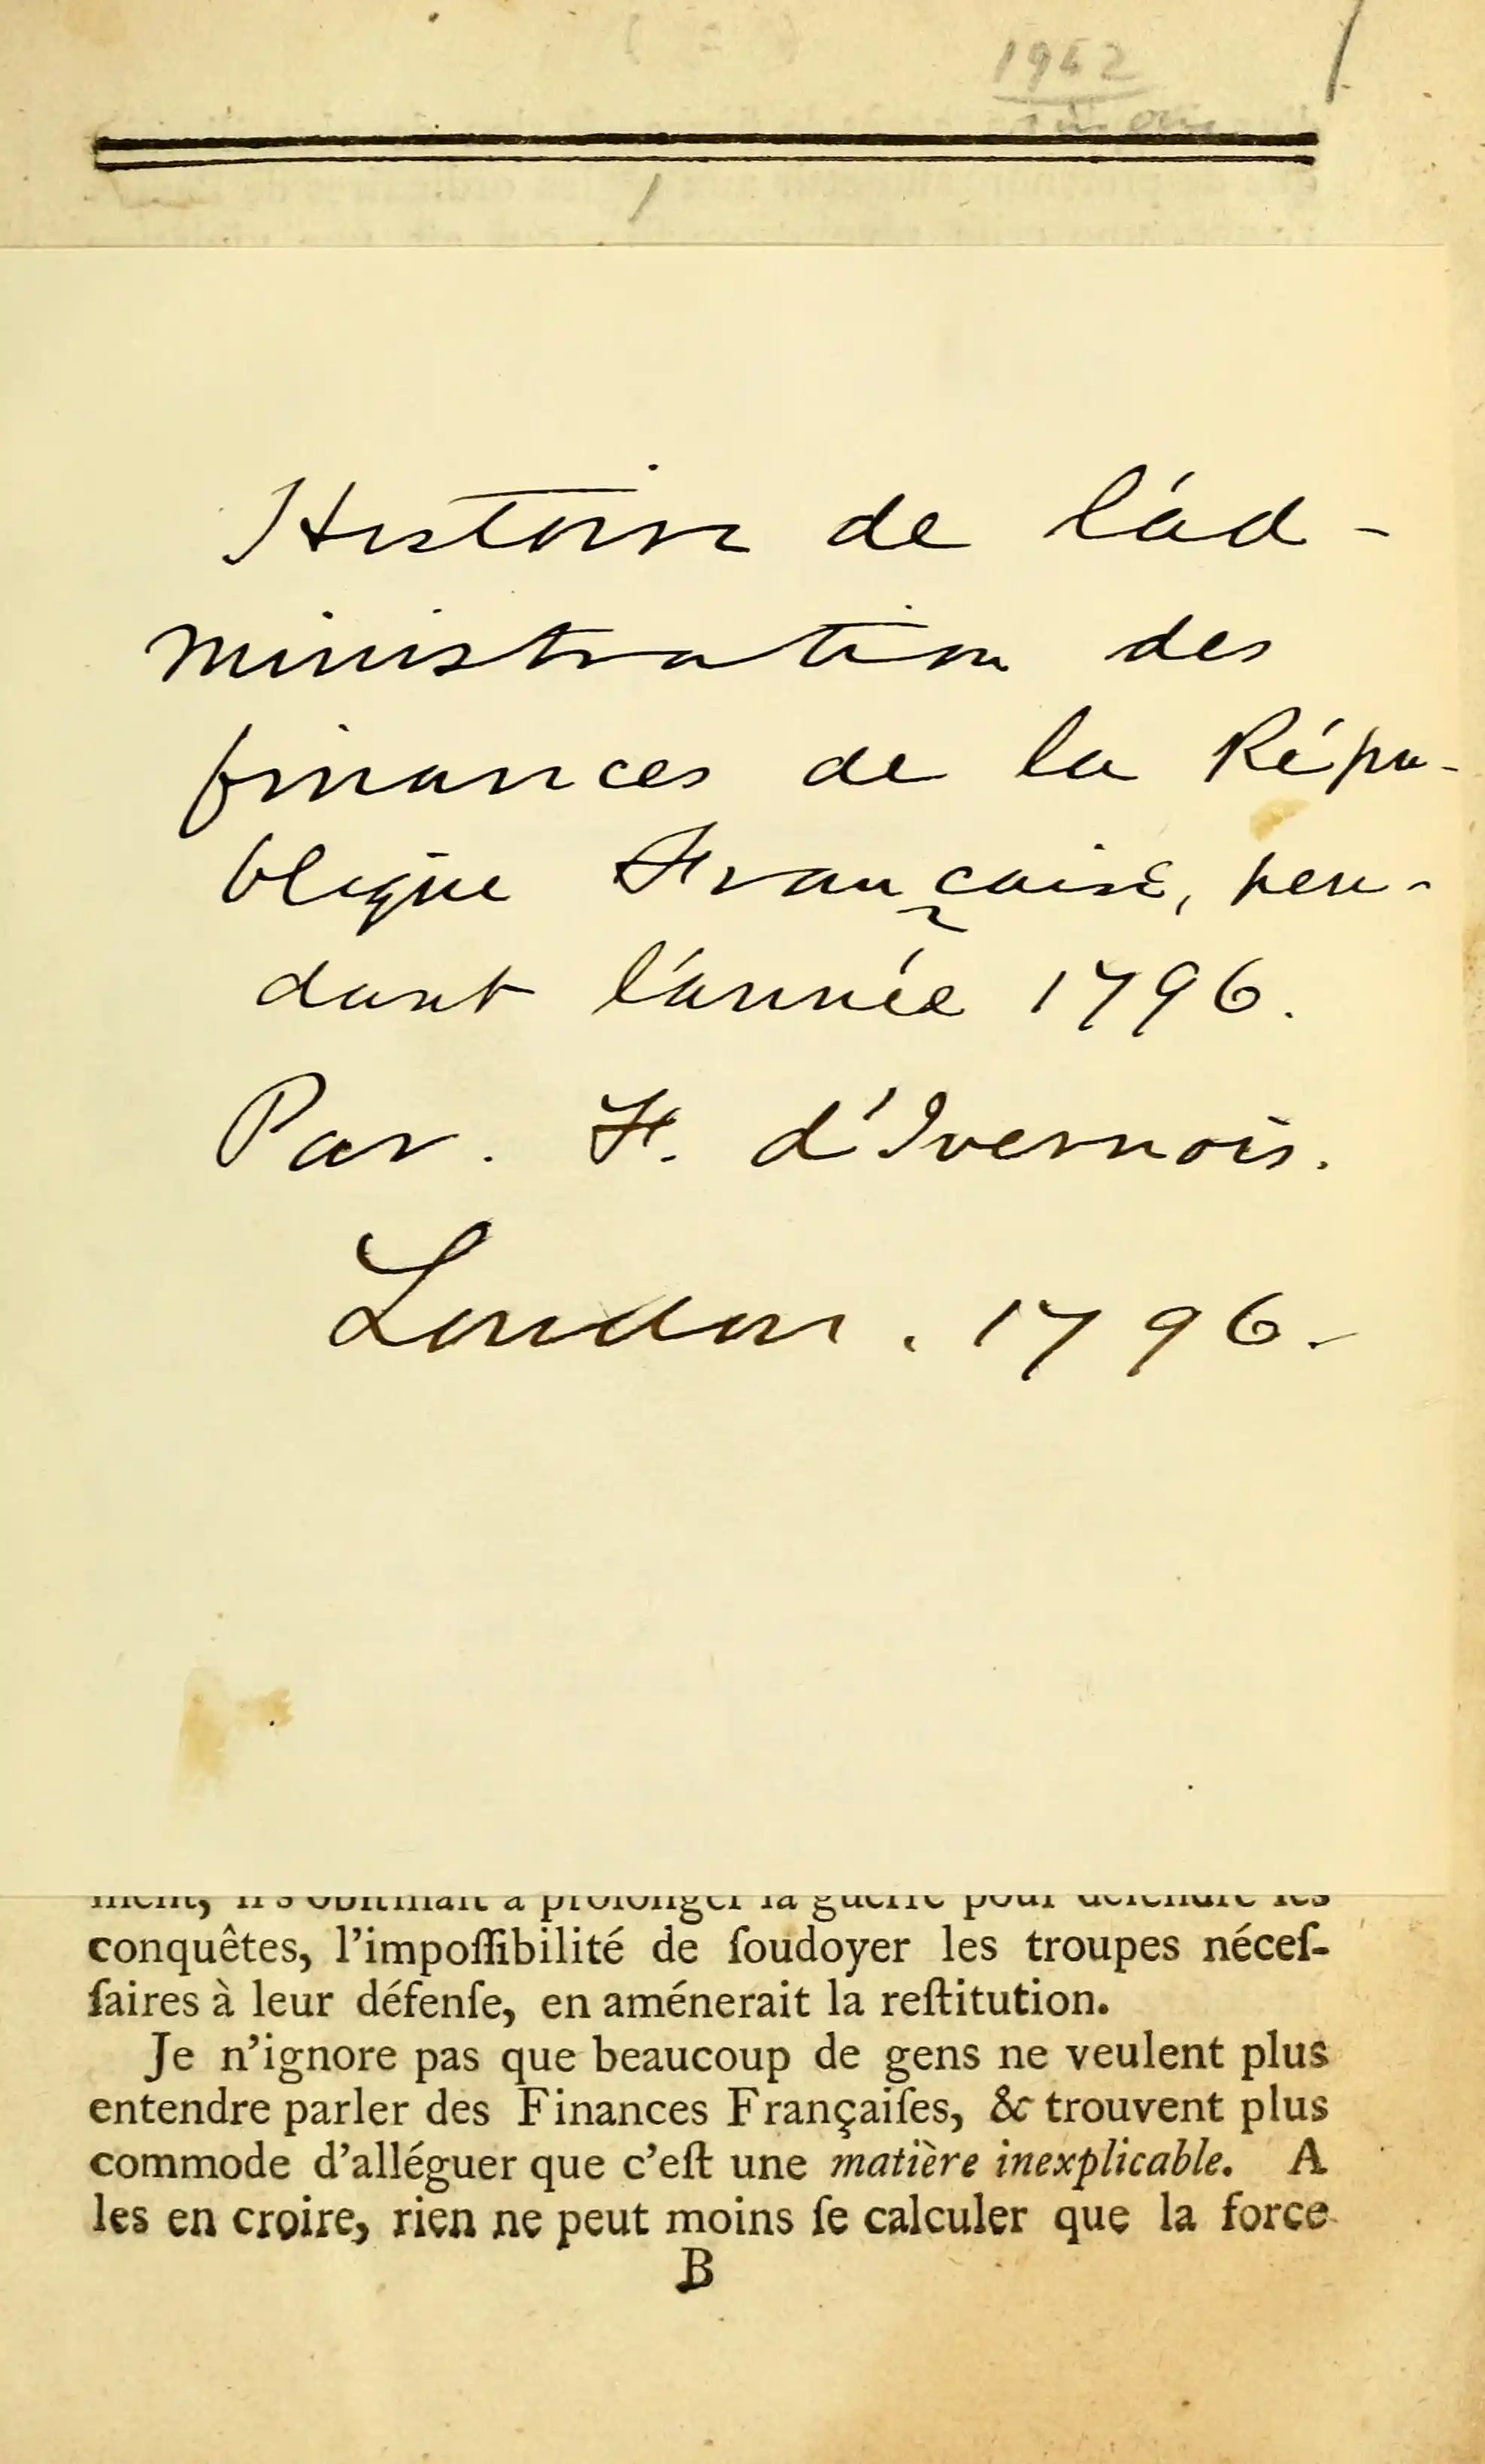 1962
Histoire de l'ad-
ministration des
finances de la Répu-
blique Française, pen-
dant l'année 1796.
Par. F. d'Ivernois.
London. 1796.
ment, il s'obstinait à prolonger la guerre pour défendre ses
conquêtes, l'impoſſibilité de ſoudoyer les troupes néceſ-
ſaires à leur défenſe, en aménerait la reſtitution.
Je n'ignore pas que beaucoup de gens ne veulent plus
entendre parler des Finances Françaiſes, & trouvent plus
commode d'alléguer que c'eſt une matière inexplicable. A
les en croire, rien ne peut moins ſe calculer que la force
B